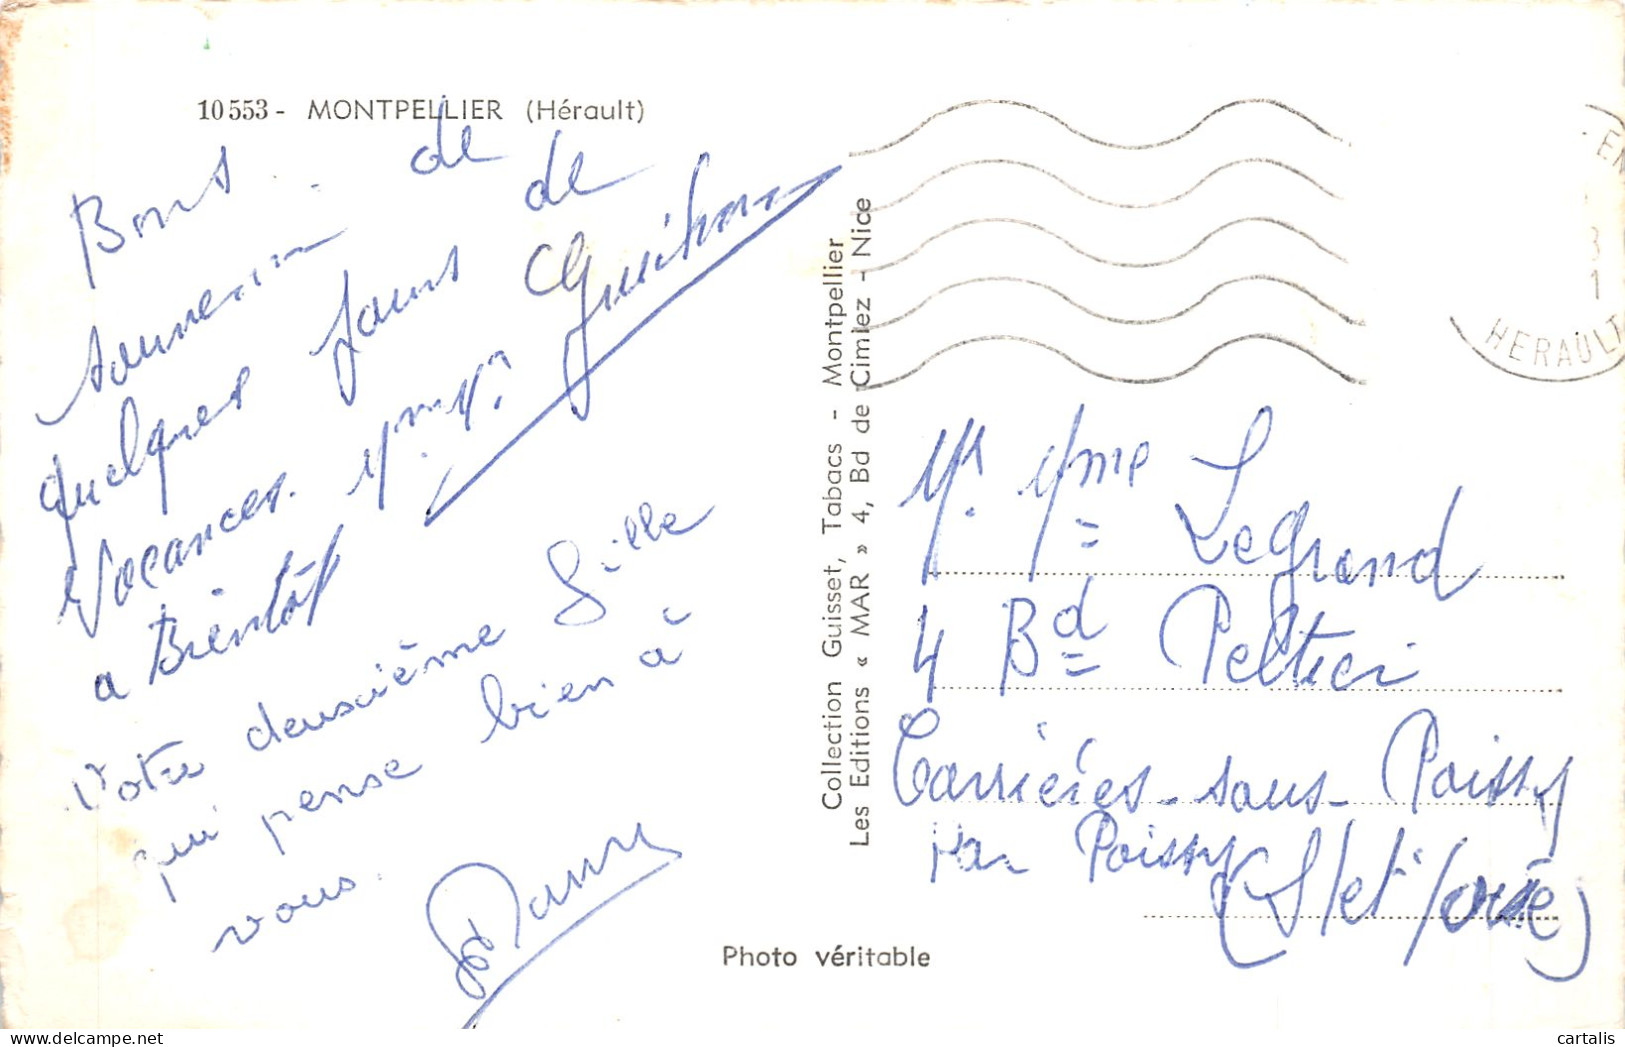 10553 - MONTPELLIER (Hérault)
Bons
souvenirs de
quelques jours de
Vacances.
a Bientôt
Votre deuxième fille
qui pense bien à
vous.
Collection Guisset, Tabacs - Montpellier
Les Editions « MAR » 4, Bd de Cimiez - Nice
HERAULT
Mr. Mme Legrand
4 Bd Peltier
Carrières-sous-Poissy
par Poissy
(S/et/Oise)
Photo véritable
cartalis